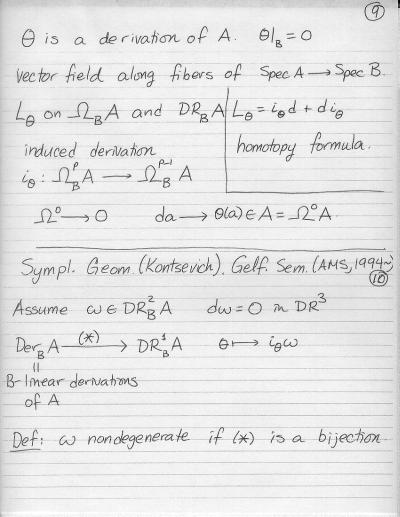 ⑨
θ is a derivation of A. θ|_B = 0
vector field along fibers of Spec A → Spec B.
L_θ on Ω_B A and DR_B A | L_θ = i_θ d + d i_θ
induced derivation
homotopy formula.
i_θ : Ω_B^p A → Ω_B^{p-1} A
Ω⁰ → 0 da → θ(a) ∈ A = Ω⁰A.
Sympl. Geom. (Kontsevich), Gelf. Sem. (AMS, 1994~)
⑩
Assume ω ∈ DR_B^2 A dω = 0 in DR^3
Der_B A —(*)→ DR_B^1 A θ ↦ i_θ ω
||
B-linear derivations
of A
Def: ω nondegenerate if (*) is a bijection.